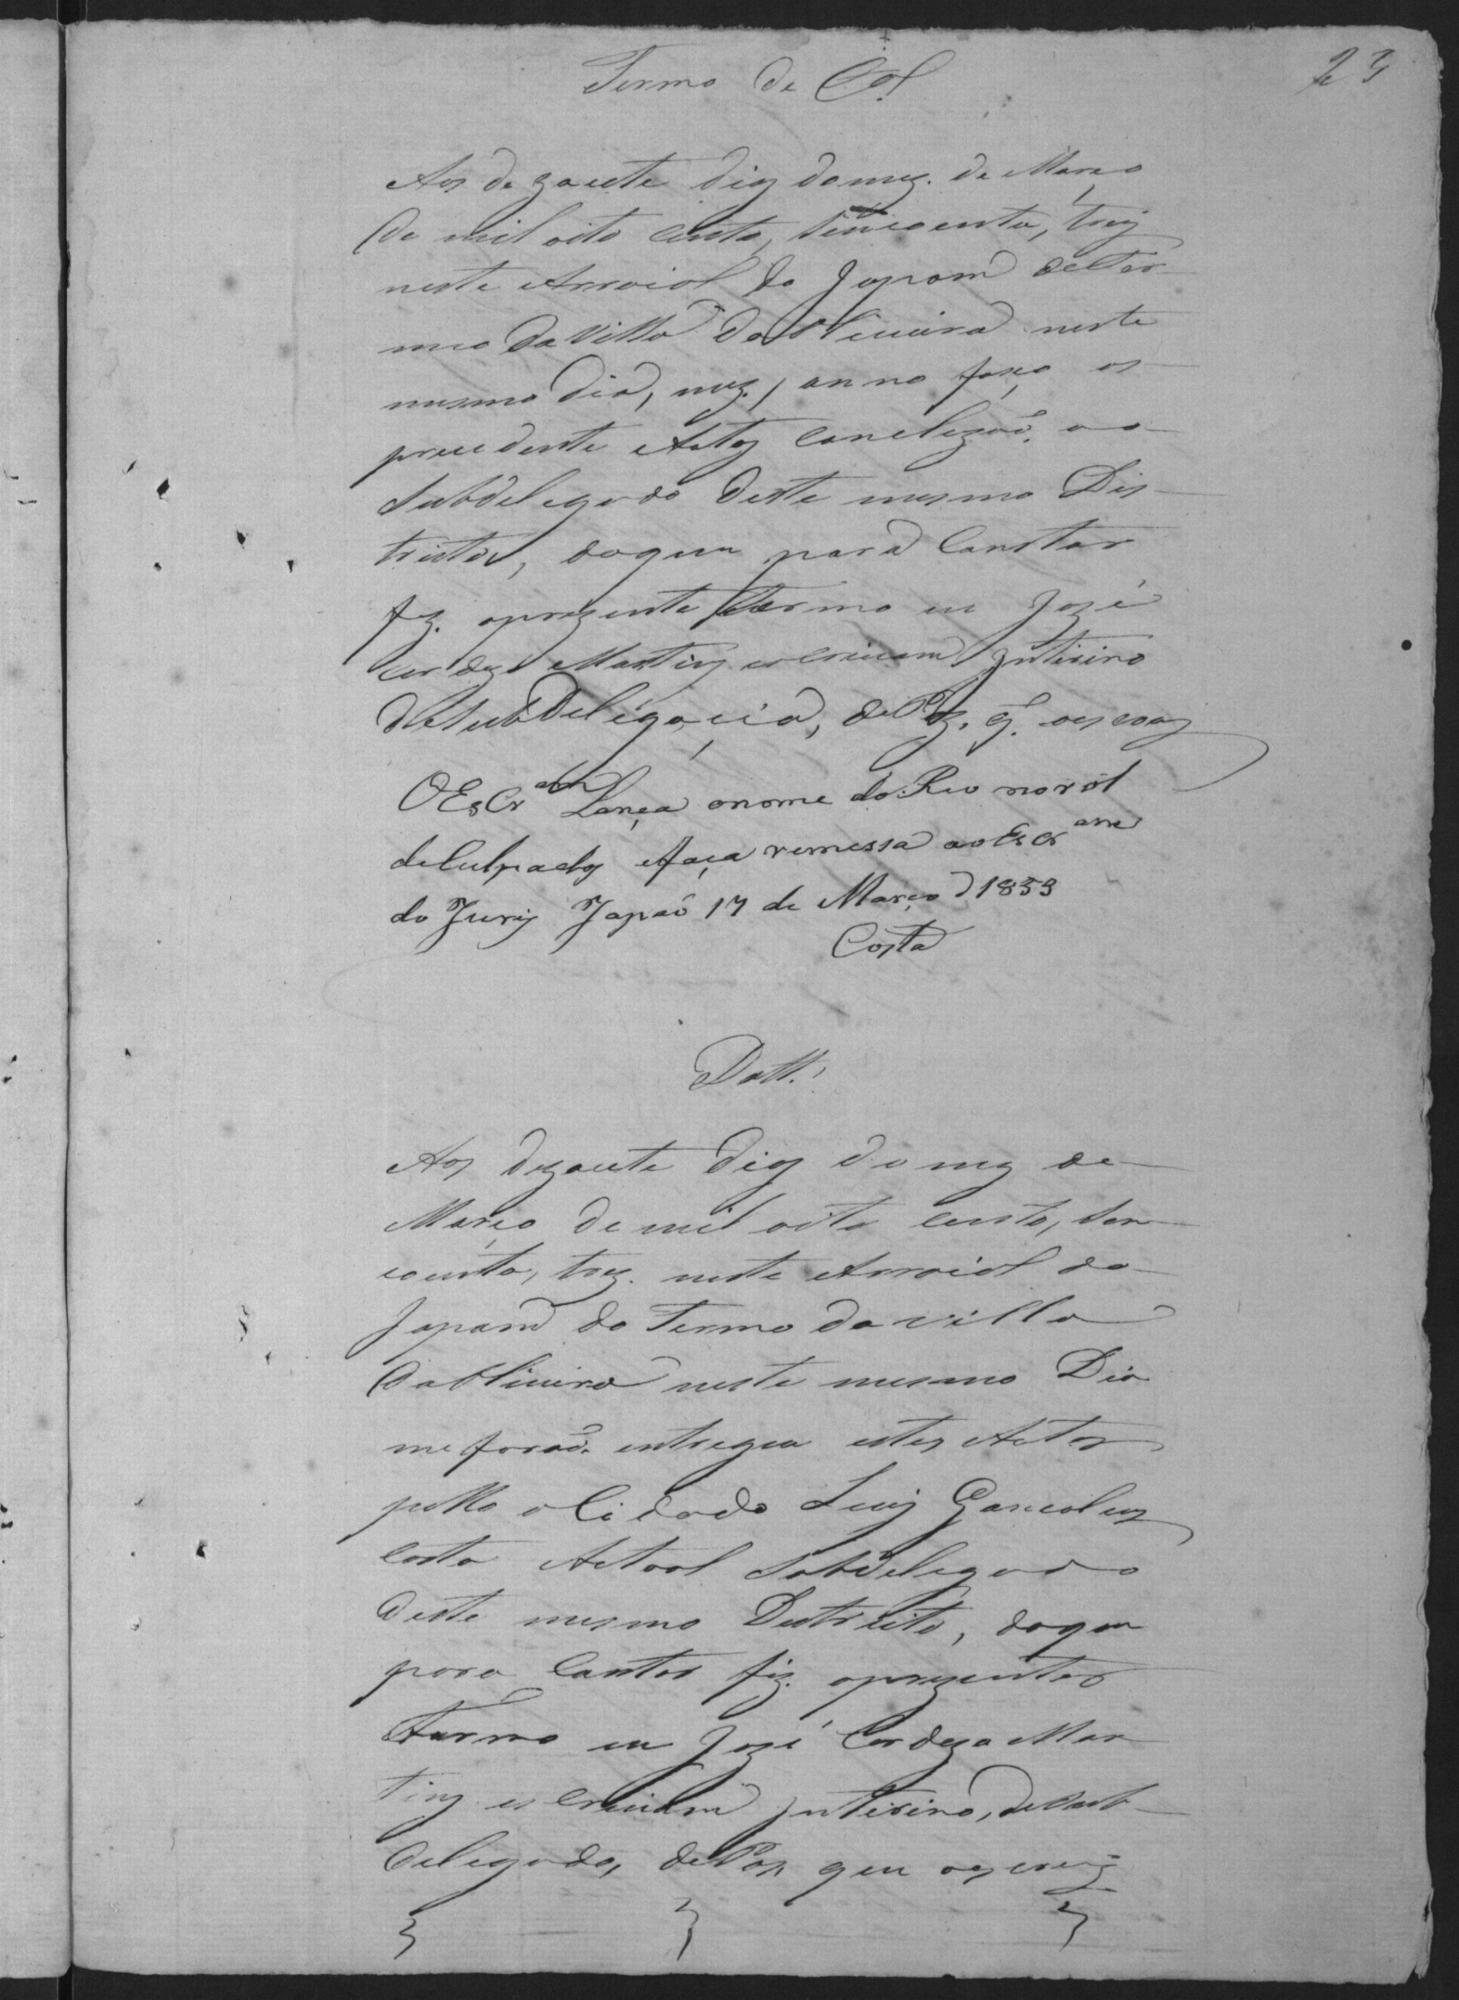 23
Termo de Cl.
Aos dezacete dias do mez. de Março
de mil oito cento, sincoenta, trez
neste Arraial do Japam do Ter
mo da Villa da Oliveira neste
mesmo dia, mez, anno faço os
precedente Actos Conclezaõ. ao
Subdelegado deste mesmo Dis
tricto, doque para Constar
fiz. aprezente termo eu José
Cardozo Martins escrivam Interino
de SubDelegacia, de Paz. q. escrevy
O Escram Lança onome do Reo no rol
de Culpados efaça remessa ao Escram
do Jury Japaõ 17 de Março 1853
Costa
Datt.
Aos dezacete dias do mez de
Março de mil oito cento, sen
coenta, trez. neste Arraial do
Japam do Termo da villa
da Oliveira neste mesmo Dia
me foraõ. entregea estes Actos
pello Cidadaõ Luis Gonsalves
Costa Actoal Sobdelegado
deste mesmo Destricto, doque
para Constar fiz. aprezente
Termo eu José Cardozo Mar
tins escrivam Interino, de Sub
delegado, de Paz que escrevy